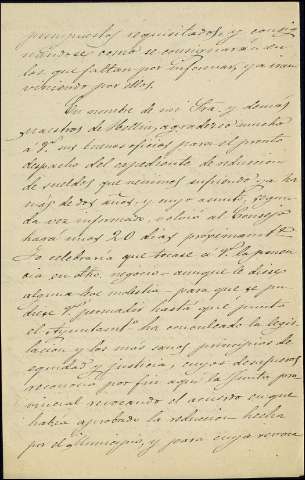 presupuestos requisitados, y consig-
nándose como se consignarán en
los que faltan por informar, ya man-
 por ellos.
En nombre de mi Sra. y demás
Maestros de Hellín, agradezco mucho
a V. sus buenos oficios para el pronto
despacho del expediente de reducción
de sueldos que venimos sufriendo ya ha
más de dos años, y cuyo asunto, segun-
da vez informado, volvió al Consejo
hará unos 20 días próximamte.
Yo celebraría que tocase a V. la ponen-
cia en dho. negocio - aunque le diese
alguna molestia - para que se pu-
diese V. persuadir hasta qué punto
el Ayuntamto. ha conculcado la legis-
lación y los más sanos principios de
equidad y justicia, cuyos desafueros
reconoció por fin aquí la Junta pro-
vincial revocando el acuerdo en que
había aprobado la reducción hecha
por el Municipio, y para cuya revoca-